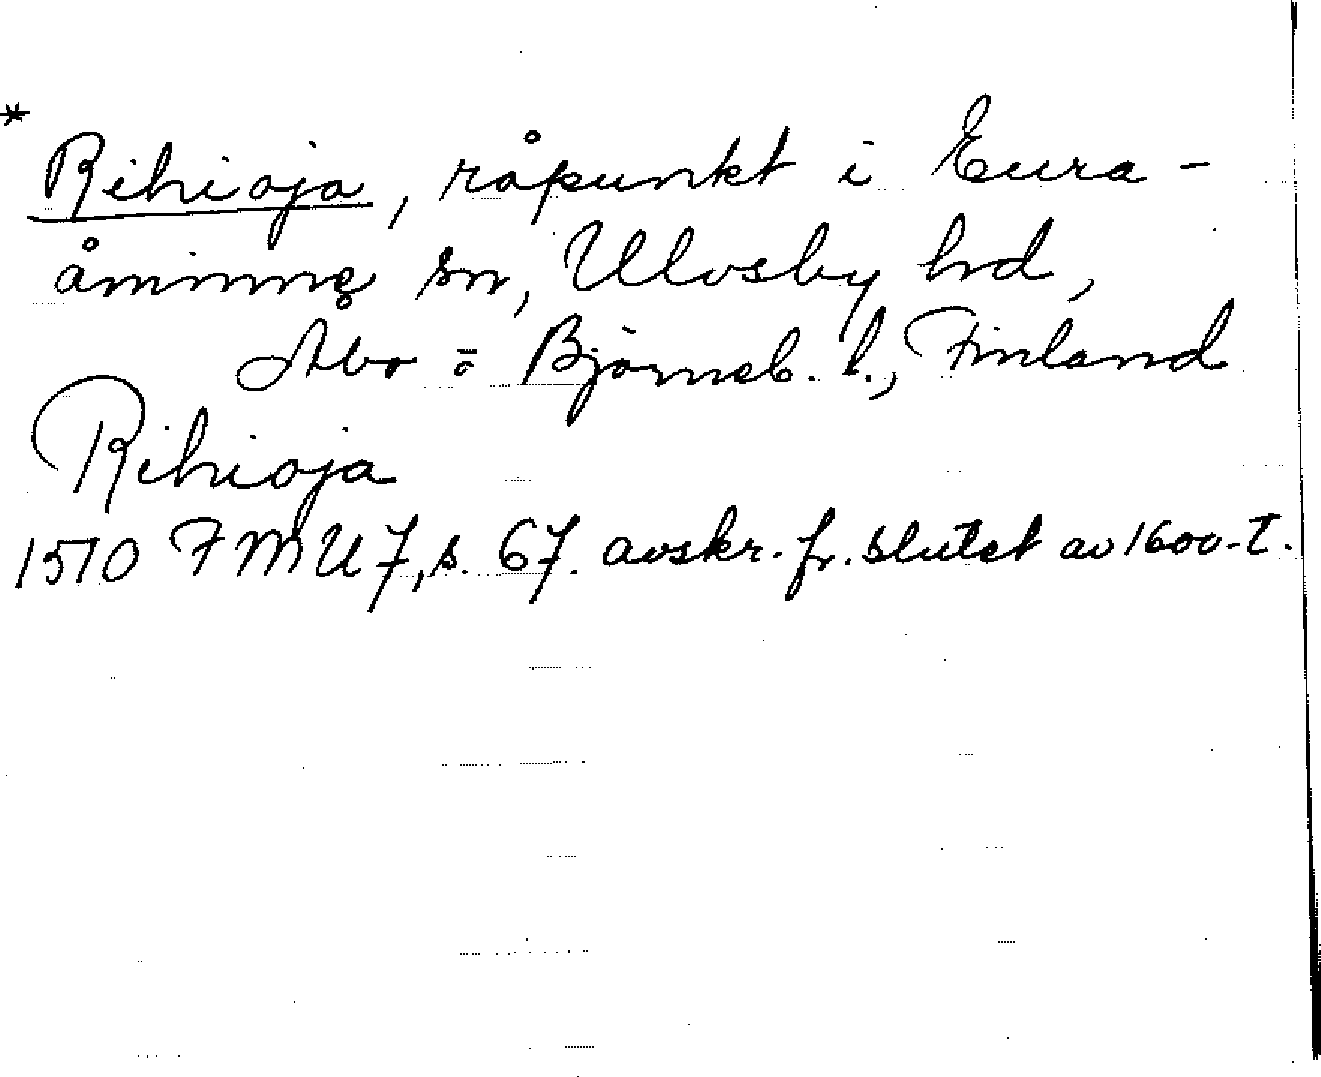 *
Rihioja, råpunkt i Eura-
åminne sn, Ulvsby hd,
Åbo o Björneb. l., Finland
Rihioja
1570 FMU 7, s. 67. avskr. fr. slutet av 1600-t.